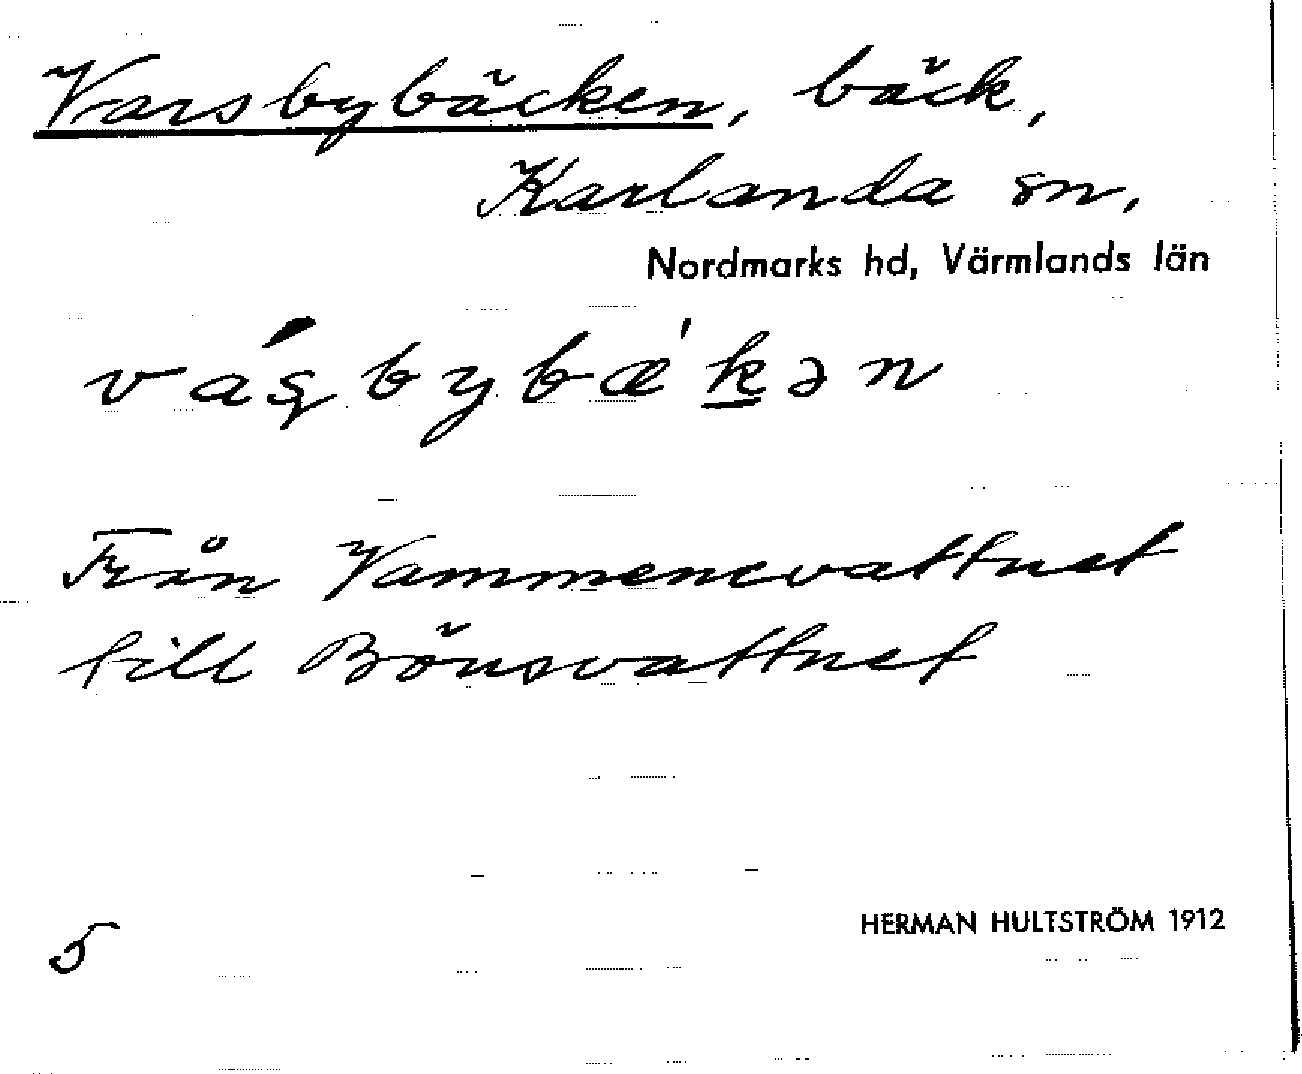 Varsbybäcken, bäck,
Karlanda sn,
Nordmarks hd, Värmlands län
vás̨bybǽk̲ən
Från Vammenevattnet
till Bönsvattnet
5
HERMAN HULTSTRÖM 1912